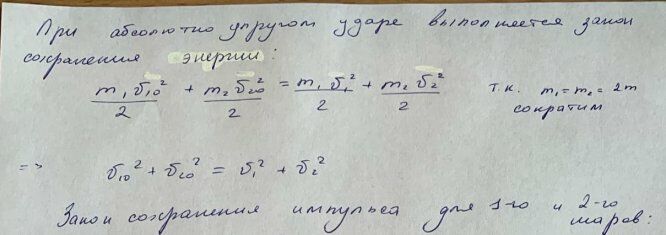 При абсолютно упругом ударе выполняется закон
сохранения энергии:
m₁v₁₀²/2 + m₂v₂₀²/2 = m₁v₁²/2 + m₂v₂²/2 т.к. m₁ = m₂ = 2m
сократим
=> v₁₀² + v₂₀² = v₁² + v₂²
Закон сохранения импульса для 1-го и 2-го
шаров: